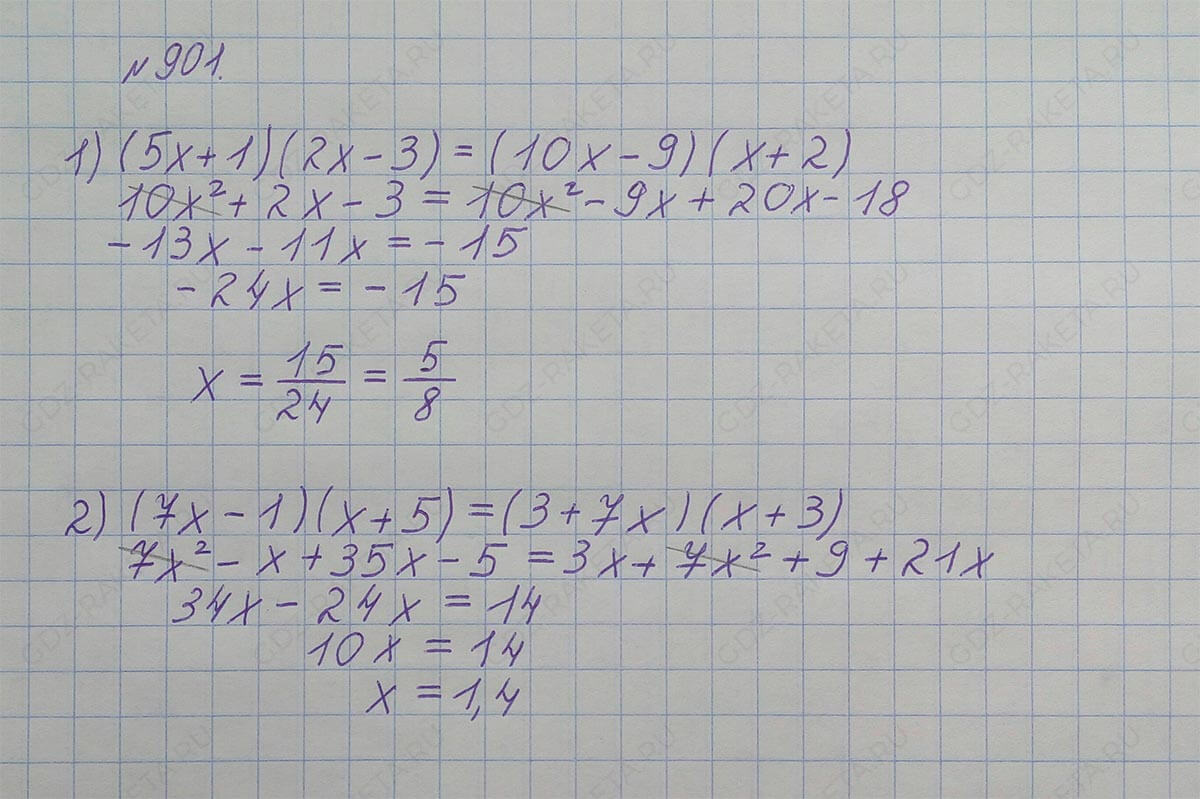 № 901.
1) (5x+1)(2x-3)=(10x-9)(x+2)
10x²+2x-3=10x²-9x+20x-18
-13x-11x=-15
-24x=-15
x=15/24=5/8
2) (7x-1)(x+5)=(3+7x)(x+3)
7x²-x+35x-5=3x+7x²+9+21x
34x-24x=14
10x=14
x=1,4
GDZ-RAKETA.RU